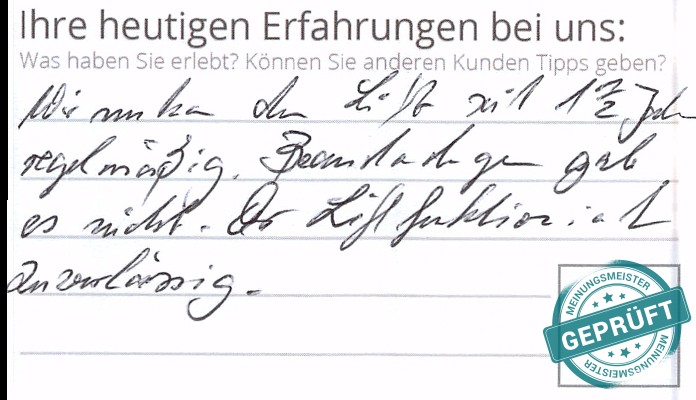 Ihre heutigen Erfahrungen bei uns:
Was haben Sie erlebt? Können Sie anderen Kunden Tipps geben?
Wir nutzen den Lift seit 1 1/2 Jahren
regelmäßig. Beanstandungen gab
es nicht. Der Lift funktioniert
zuverlässig.
MEINUNGSMEISTER
GEPRÜFT
MEINUNGSMEISTER